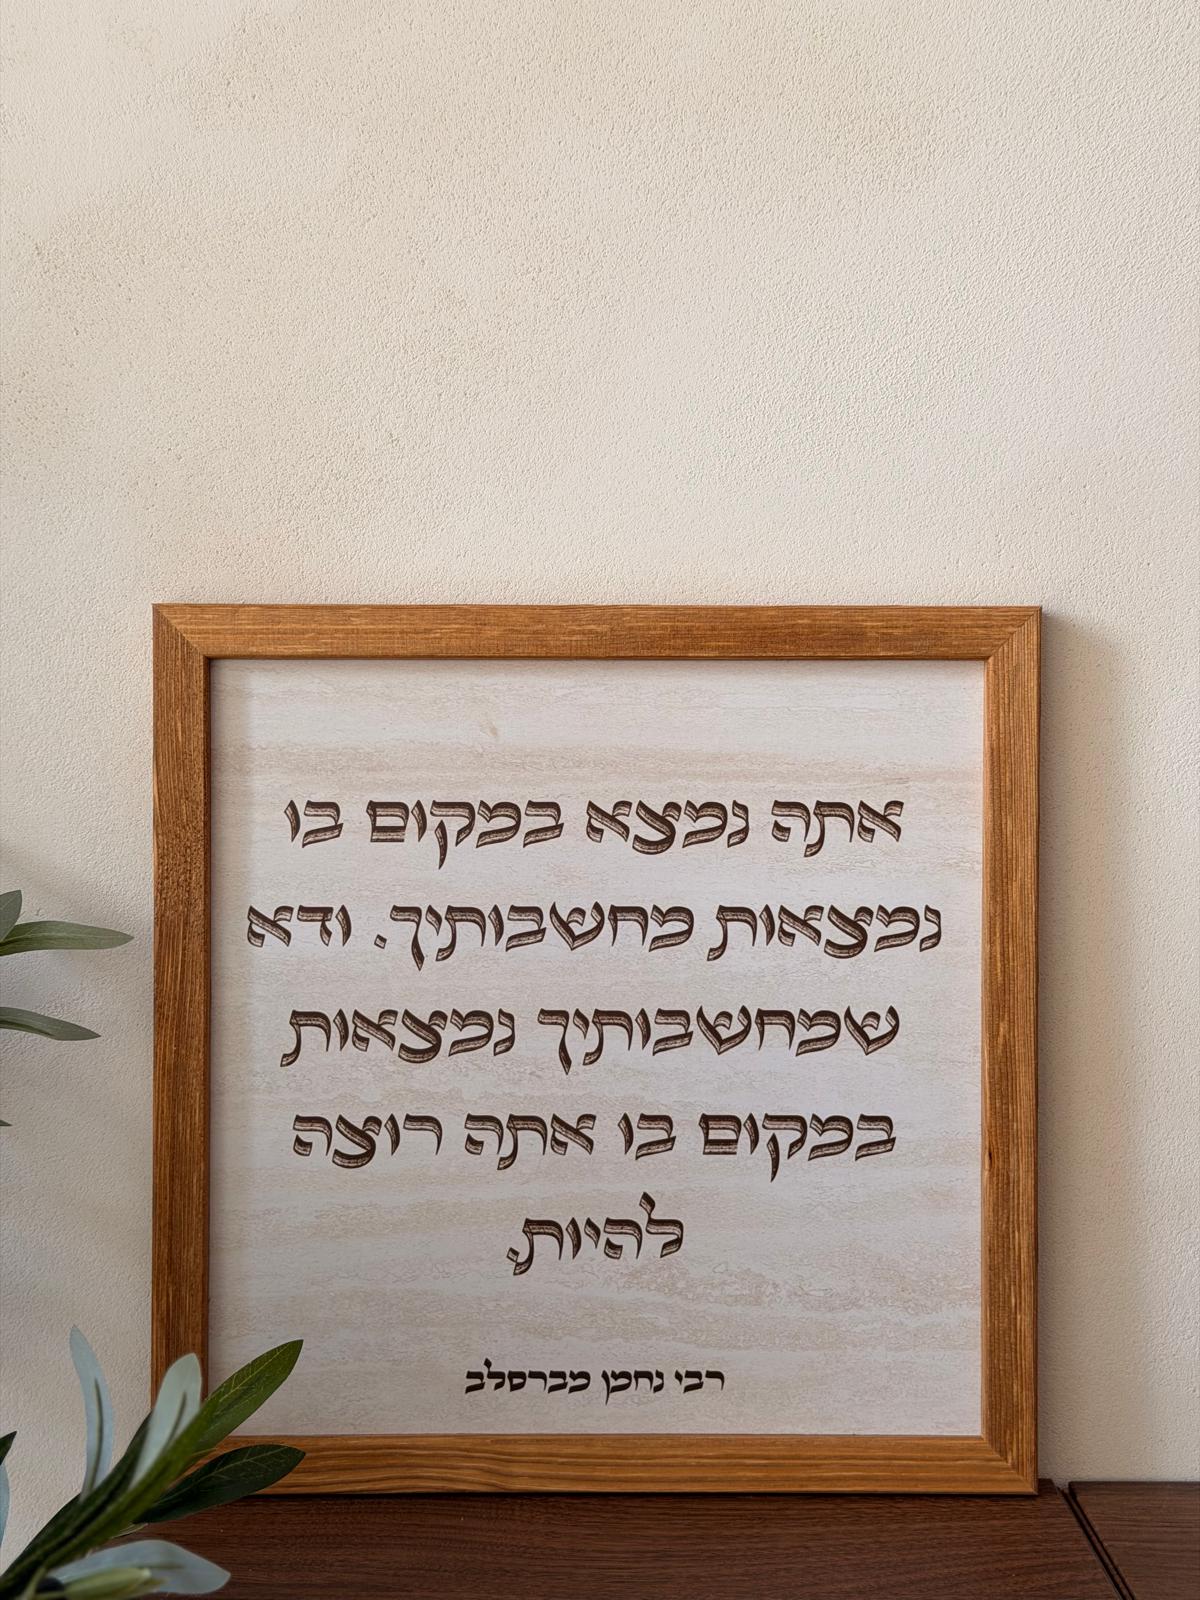 אתה נמצא במקום בו
נמצאות מחשבותיך. ודא
שמחשבותיך נמצאות
במקום בו אתה רוצה
להיות.
רבי נחמן מברסלב